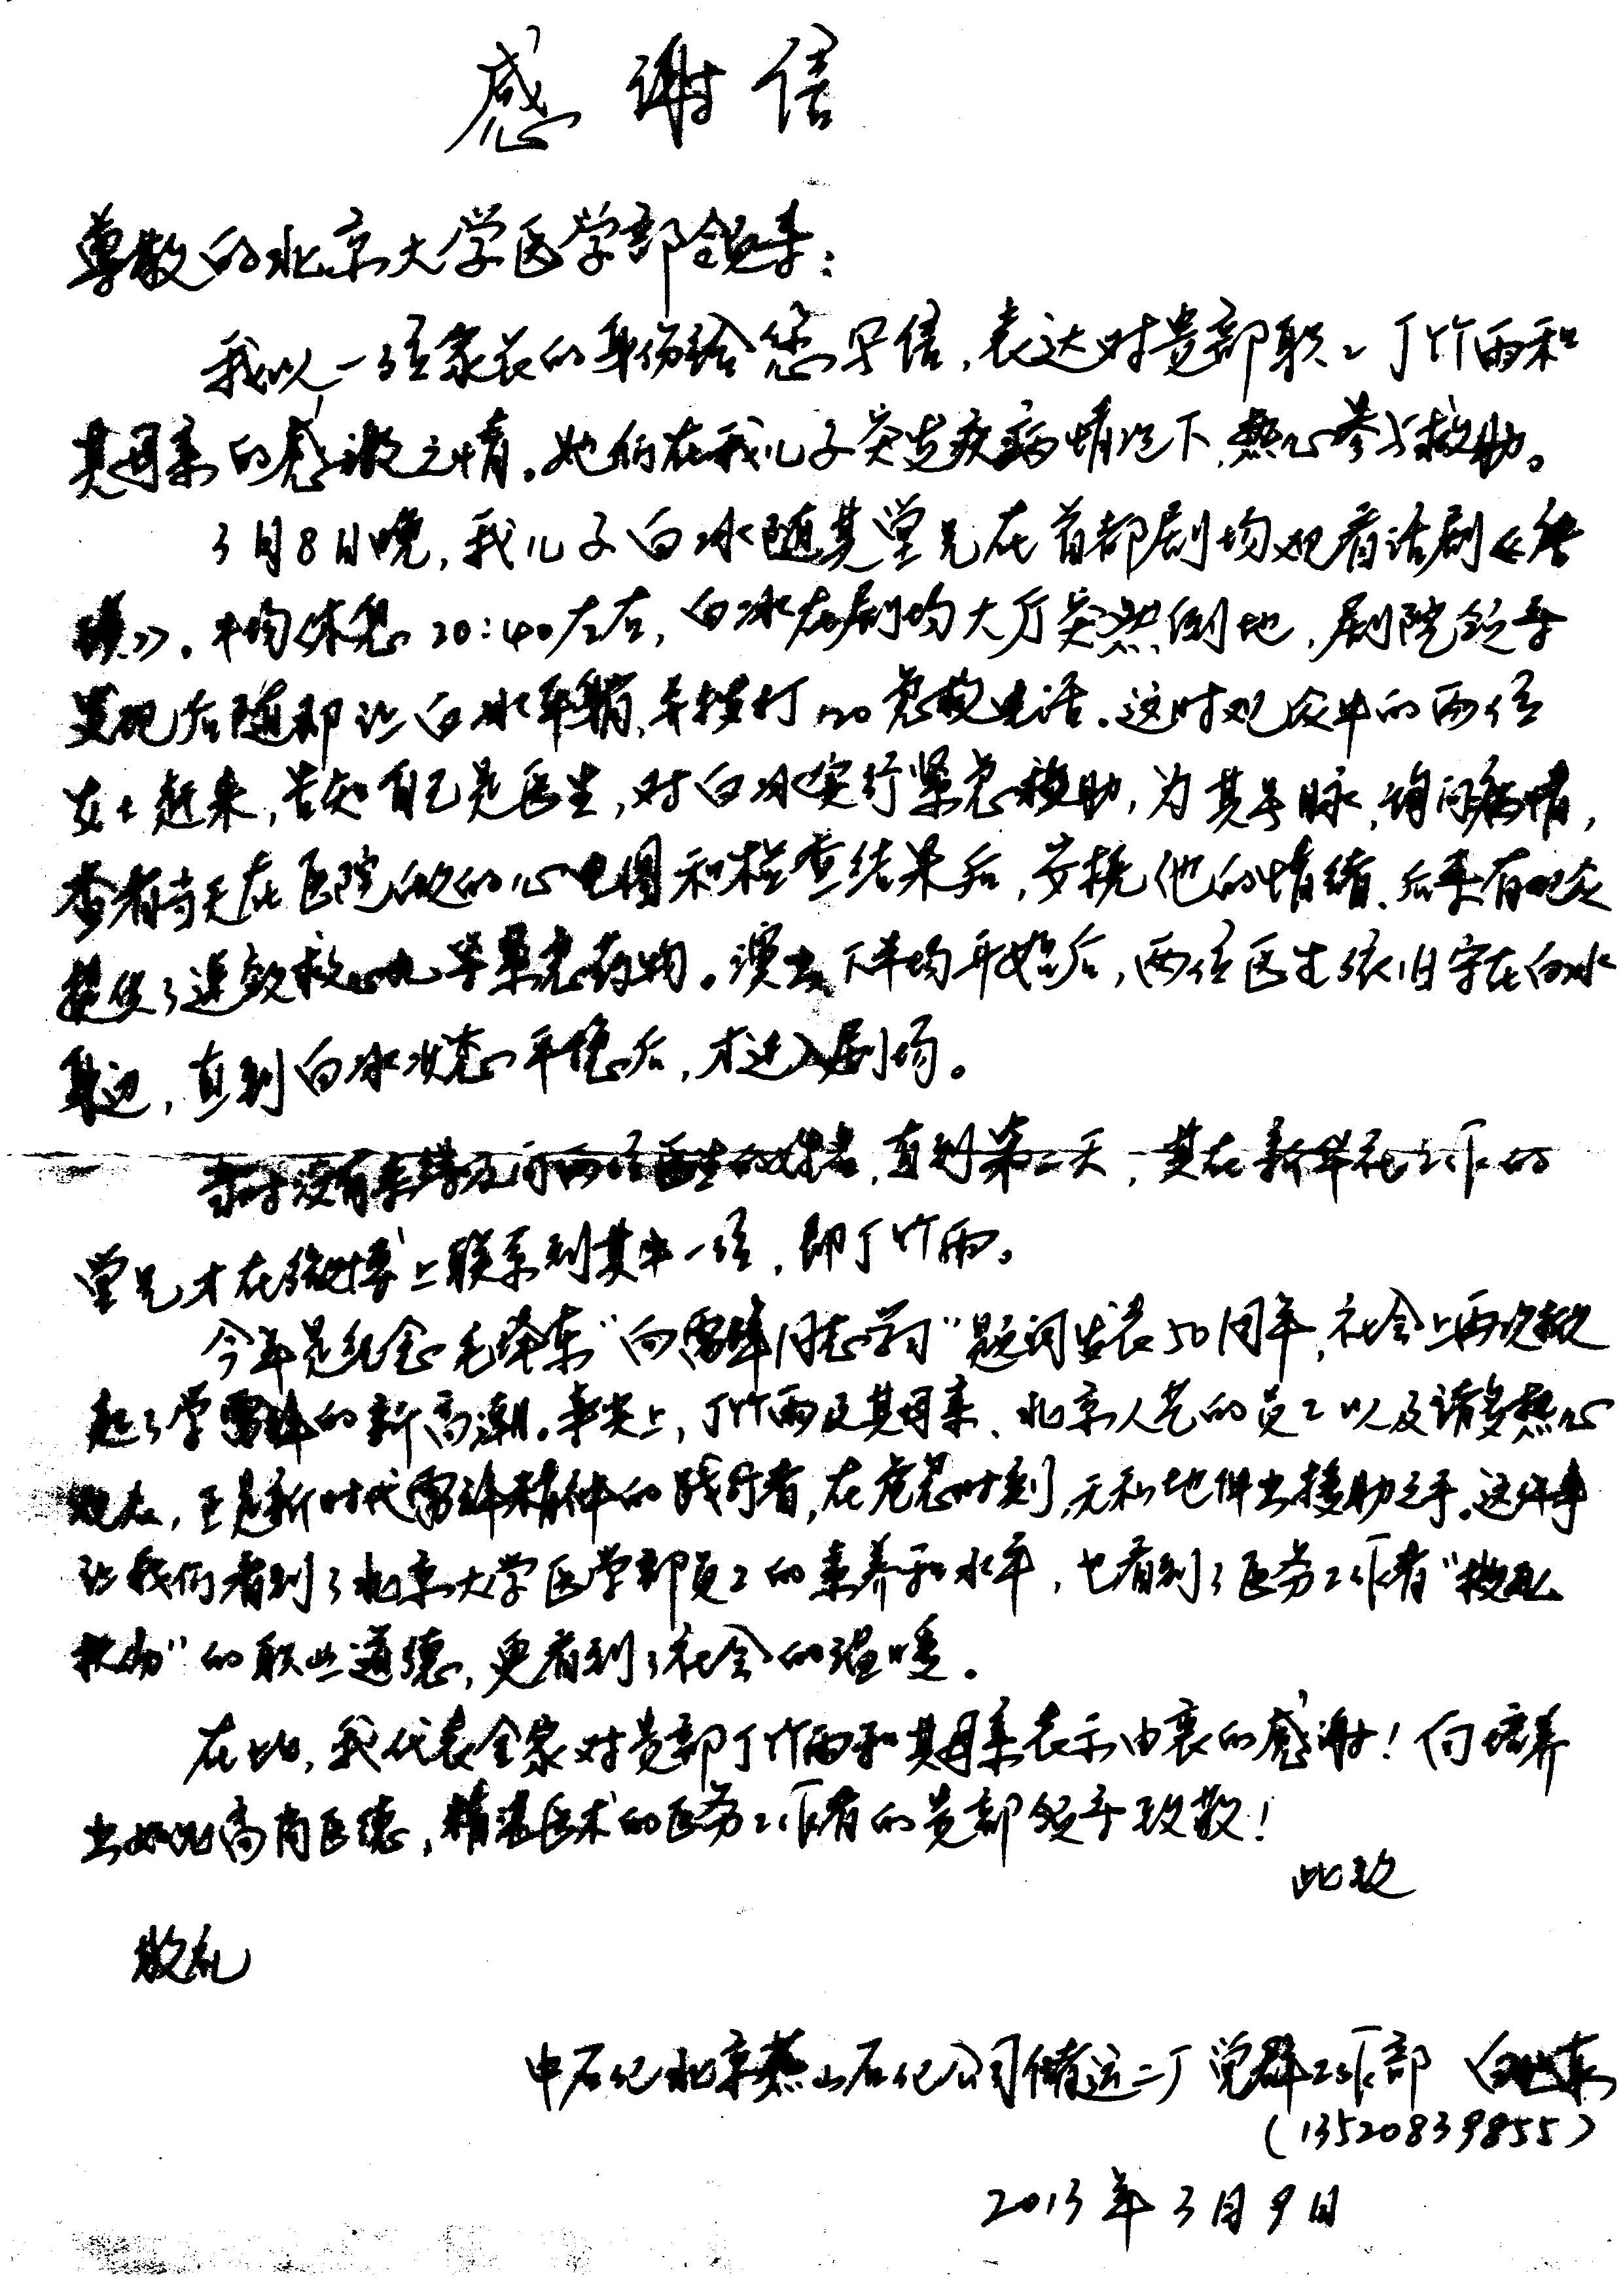 感谢信
尊敬的北京大学医学部领导：
我以一位家长的身份给您写信，表达对贵部职工丁竹雨和
其母亲的感激之情。她们在我儿子突发疾病情况下，热心参与救助。
3月8日晚，我儿子白冰随其堂兄在首都剧场观看话剧《
》。中场休息20:40左右，白冰在剧场大厅突然倒地，剧院领导
发现后随即让白冰平躺，并拨打120急救电话。这时观众中的两位
女士赶来，告知自己是医生，对白冰实行紧急救助，为其号脉，询问病情，
查看当天在医院做的心电图和检查结果后，安抚他的情绪。后来有观众
提供了速效救心丸等紧急药物。演出下半场开始后，两位医生依旧守在白冰
身边，直到白冰状态平稳后，才进入剧场。
当时没有来得及问两位医生的姓名，直到第二天，其在新华社工作的
堂兄才在微博上联系到其中一位，即丁竹雨。
今年是纪念毛泽东“向雷锋同志学习”题词发表50周年，社会上再次掀
起了学雷锋的新高潮。事实上，丁竹雨及其母亲、北京人艺的员工以及诸多热心
观众，正是新时代雷锋精神的践行者，在危急时刻，无私地伸出援助之手。这件事
让我们看到了北京大学医学部员工的素养和水平，也看到了医务工作者“救死
扶伤”的职业道德，更看到了社会的温暖。
在此，我代表全家对贵部丁竹雨和其母亲表示由衷的感谢！向培养
出如此高尚医德，精湛医术的医务工作者的贵部领导致敬！
此致
敬礼
中石化北京燕山石化公司储运二厂党群工作部 白
（13520839855）
2013年3月9日